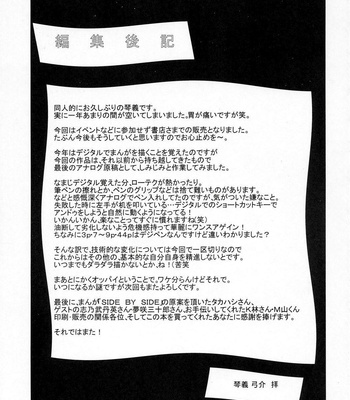 編集後記
同人的にお久しぶりの琴義です。
実に一年あまりの間が空いてしまいました。胃が痛いです笑。
今回はイベントなどに参加せず書店さまでの販売となりました。
たぶん今後もそうしていくと思いますのでお心止めを。
今年はデジタルでまんがを描くことを覚えたのですが
今回の作品は、それ以前から持ち越してきたもので
最後のアナログ原稿として、しみじみと作業してみました。
なまじデジタル覚えた分、ローテクが熱かったり。
筆ペンの擦れとか、ペンのグリップなどは捨て難いものがあります。
などと感慨深くアナログでペン入れしてたのですが、気がついた嫌なこと。
失敗した時に左手が机を叩いてる…デジタルでのショートカットキーで
アンドゥしようと自然に動くようになってる！
いかんいかん、楽なことってすぐに慣れますね（笑）
油断して劣化しないよう危機感持って華麗にワンスアゲイン！
ちなみに3p7～9p・44pはデジペンなんですけど違いわかりました？
そんな訳で、技術的な変化については今回で一区切りなので
これからはその他の、基本的な自分自身を精進しないとです。
いつまでもダラダラ描かないとか、ね！（苦笑
まあとにかくオッパイということで、ワケ分らんけどそれで。
いつになるか謎ですが次回もまたよろしくです。
最後に、まんが「SIDE BY SIDE」の原案を頂いたタカハシさん、
ゲストの志乃武丹英さん・夢咲三十郎さん、お手伝いしてくれたK林さん・M山くん
印刷・販売の関係各位、そしてこの本を買ってくれたあなたに感謝を捧げます。
それではまた！
琴義弓介 拝